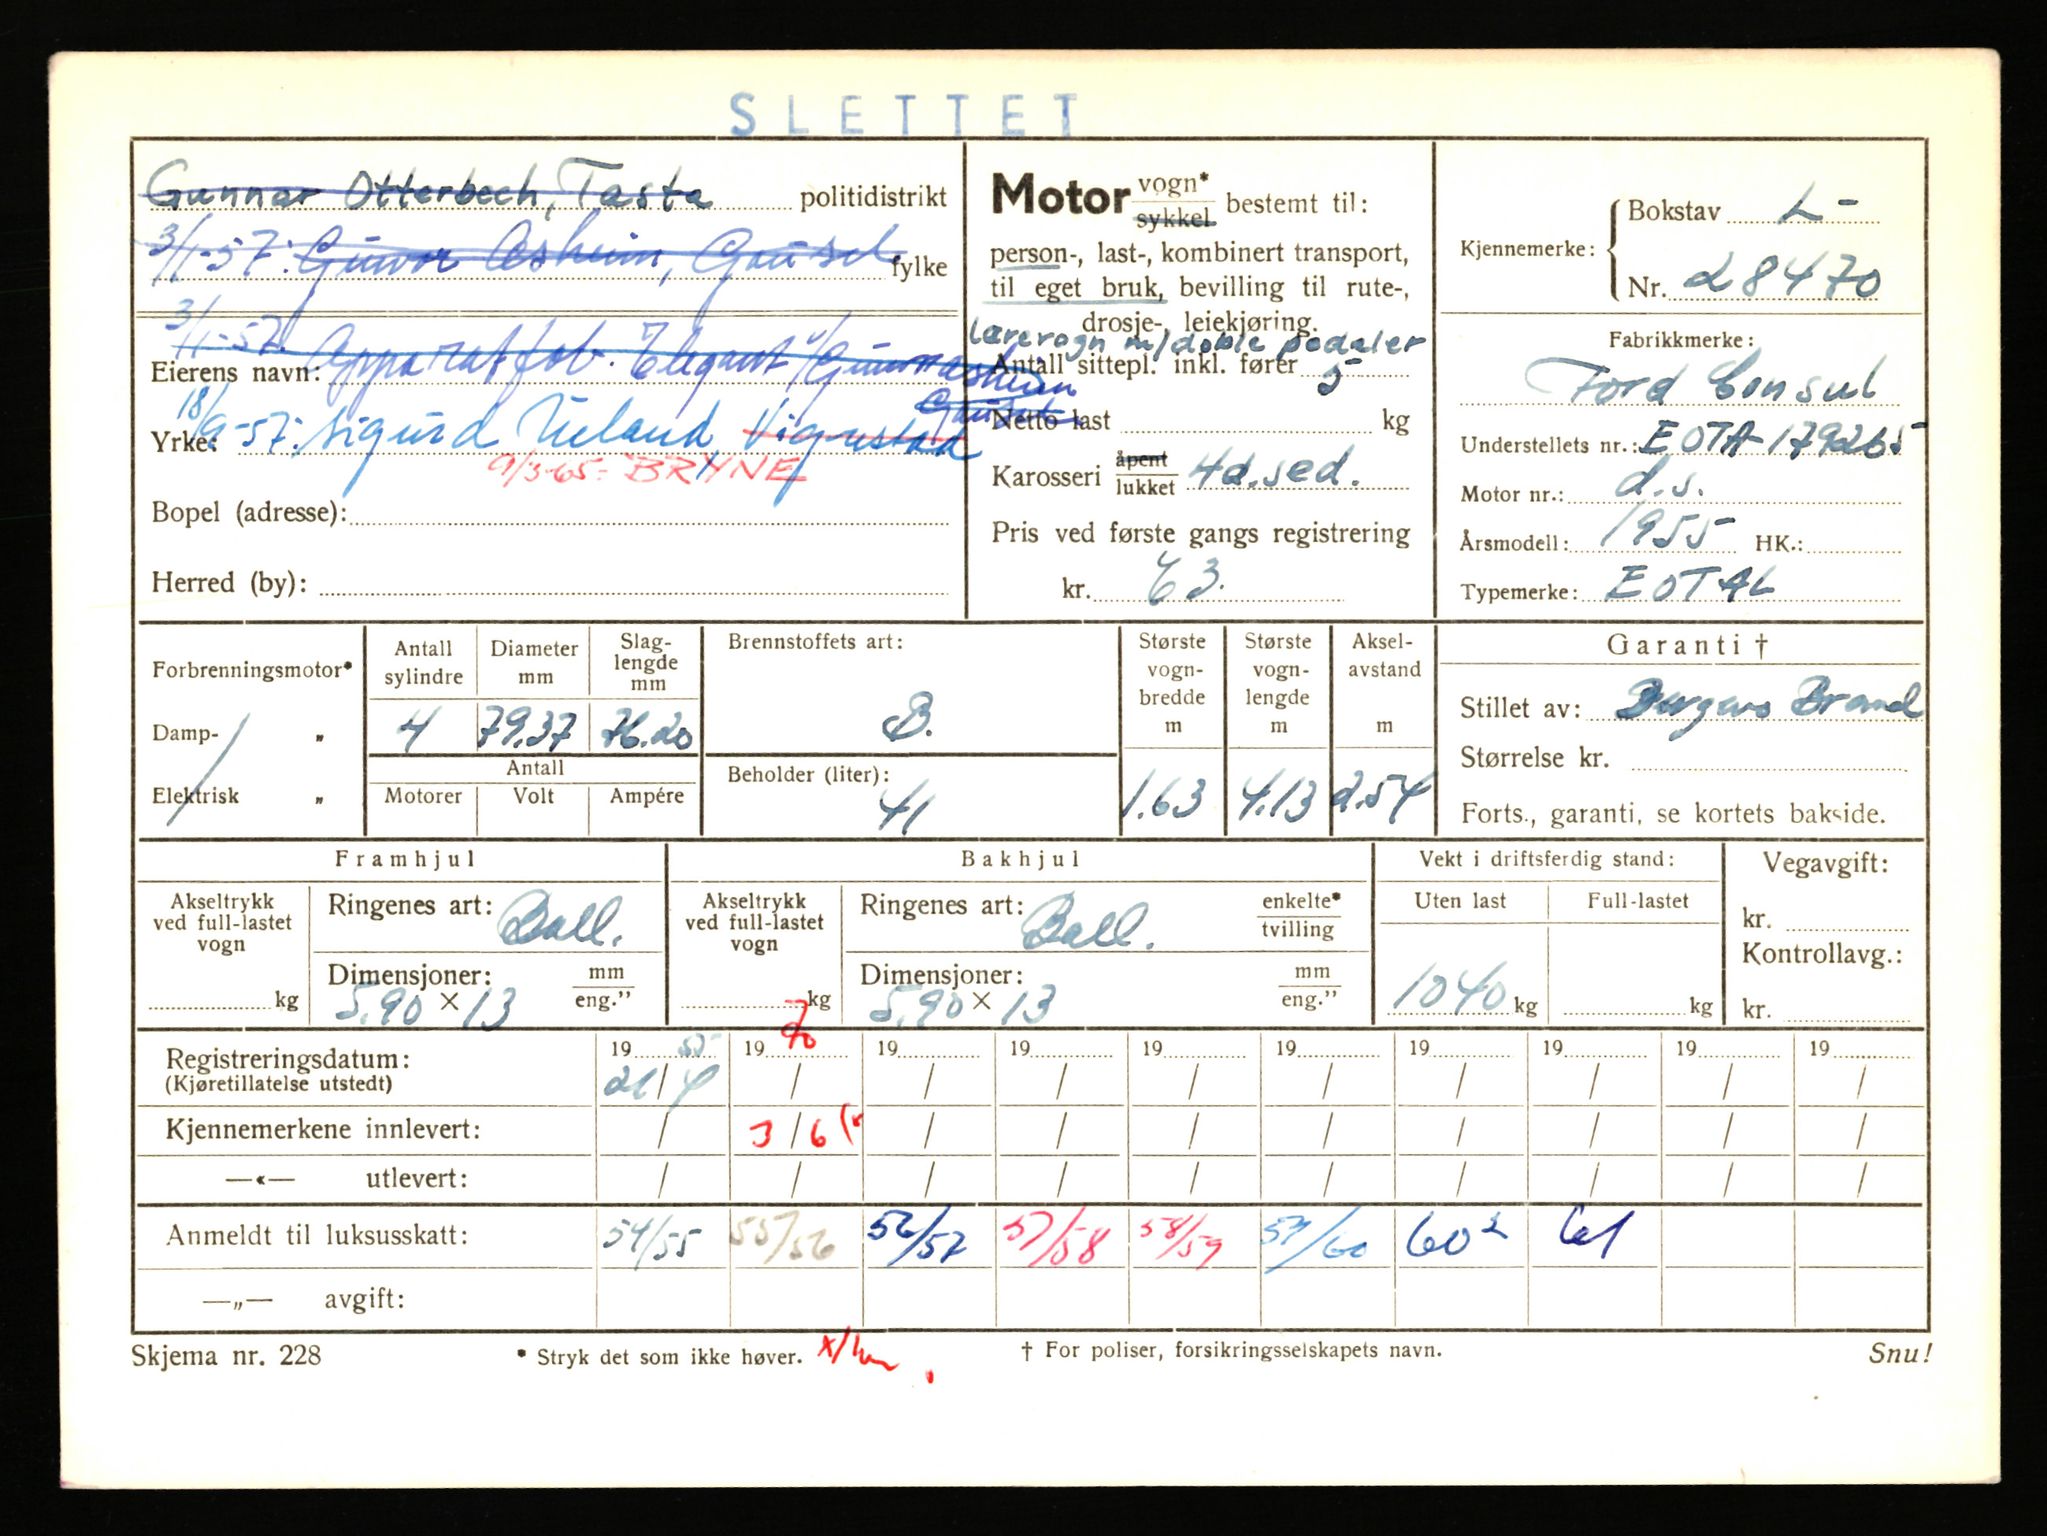 SLETTET
Gunnar Otterbech, Tasta politidistrikt
3/1-57: Gunvor Asheim, Gausel fylke
3/1-57. Apparatfab. Elegant v/Gunvor Asheim
Gausel
Eierens navn:
18/9-57: Sigurd Ueland, Vigrestad
Yrke:
9/3-65: BRYNE
Bopel (adresse):
Herred (by):
Motor vogn* sykkel bestemt til:
person-, last-, kombinert transport,
til eget bruk, bevilling til rute-,
drosje-, leiekjøring.
Lærevogn m/doble pedaler
Antall sittepl. inkl. fører 5
Netto last kg
Karosseri åpent lukket 4d. sed.
Pris ved første gangs registrering
kr. 63.
Kjennemerke: Bokstav L-
Nr. 28470
Fabrikkmerke:
Ford Consul
Understellets nr.: EOTA-179265
Motor nr.: d.s.
Årsmodell: 1955 HK.:
Typemerke: EOTAL
Forbrenningsmotor*
Damp- „
Elektrisk „
Antall sylindre
4
Diameter mm
79.37
Slag-lengde mm
76.20
Antall
Motorer Volt Ampére
Brennstoffets art:
B.
Beholder (liter):
41
Største vogn-bredde m
1.63
Største vogn-lengde m
4.13
Aksel-avstand m
2.54
Garanti †
Stillet av: Bergens Brand
Størrelse kr.
Forts., garanti, se kortets bakside.
Framhjul
Akseltrykk ved full-lastet vogn
kg
Ringenes art: Ball.
Dimensjoner: mm eng.”
5.90 x 13
Bakhjul
Akseltrykk ved full-lastet vogn
kg
Ringenes art: Ball. enkelte* tvilling
Dimensjoner: mm eng.”
5.90 x 13
Vekt i driftsferdig stand:
Uten last Full-lastet
1040 kg kg
Vegavgift:
kr.
Kontrollavg.:
kr.
Registreringsdatum: 19 55 19 70 19 19 19 19 19 19 19 19
(Kjøretillatelse utstedt) 21/4 / / / / / / / / /
Kjennemerkene innlevert: / 3/6 / / / / / / / /
—«— utlevert: / / / / / / / / / /
Anmeldt til luksusskatt: 54/55 55/56 56/57 57/58 58/59 59/60 60² 61
—„— avgift:
Skjema nr. 228 * Stryk det som ikke høver. † For poliser, forsikringsselskapets navn. Snu!